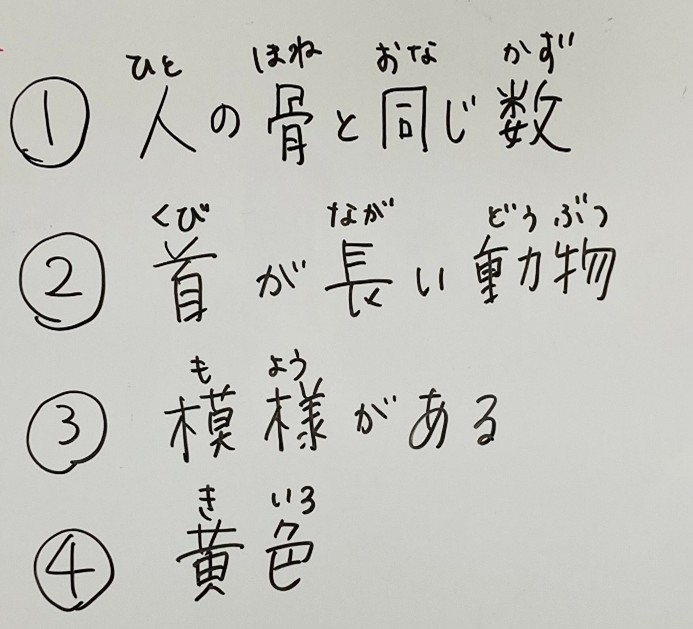 ひと ほね おな かず
① 人の骨と同じ数
くび なが どうぶつ
② 首が長い動物
も よう
③ 模様がある
き いろ
④ 黄色